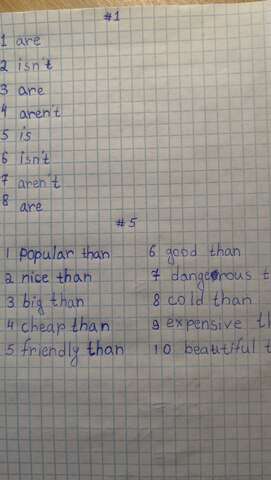 #1
1 are
2 isn't
3 are
4 aren't
5 is
6 isn't
7 aren't
8 are
#5
1 popular than
2 nice than
3 big than
4 cheap than
5 friendly than
6 good than
7 dangerous t
8 cold than
9 expensive th
10 beautiful t